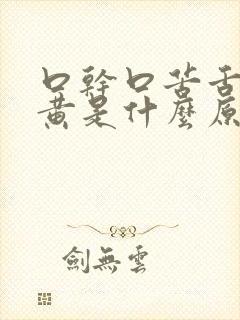 口幹口苦舌
黃是什麼原
劍無雲